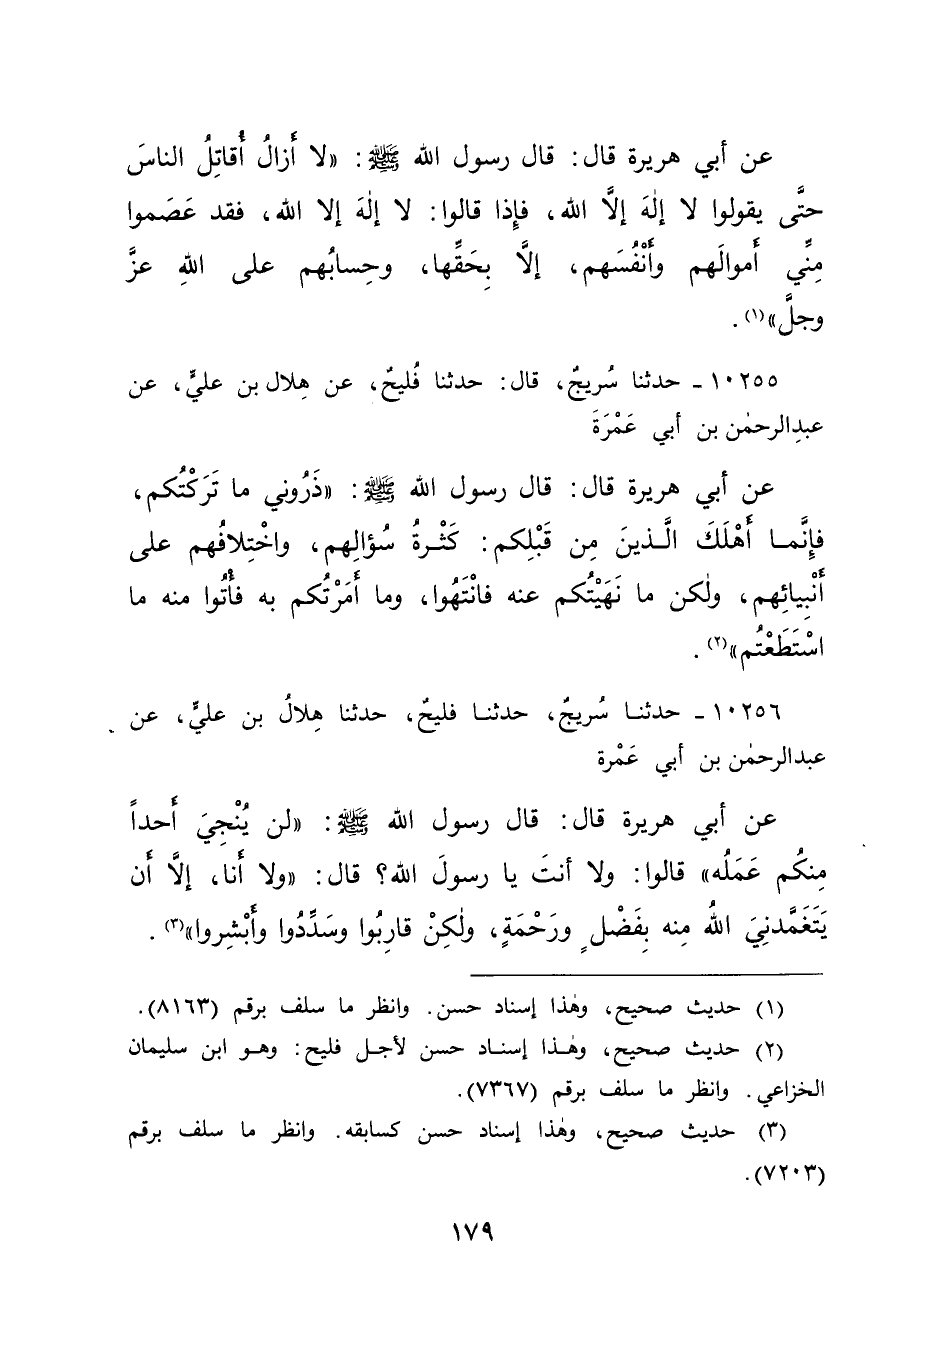 عن أبي هريرة قال: قال رسول الله ﷺ: «لا أَزالُ أُقاتِلُ الناسَ
حتَّى يقولوا لا إلٰهَ إلَّا الله، فإِذا قالوا: لا إلٰهَ إلا الله، فقد عَصَموا
مِنِّي أَموالَهم وأَنْفُسَهم، إلَّا بِحَقِّها، وحِسابُهم على اللهِ عزَّ
وجلَّ»(١).
١٠٢٥٥ - حدثنا سُريجٌ، قال: حدثنا فُليحٌ، عن هِلال بن عليٍّ، عن
عبدِالرحمٰن بن أبي عَمْرَةَ
عن أبي هريرة قال: قال رسول الله ﷺ: «ذَرُوني ما تَرَكْتُكم،
فإِنَّما أَهْلَكَ الَّذينَ مِن قَبْلِكم: كَثْرةُ سُؤالِهم، واخْتِلافُهم على
أَنْبِيائِهم، ولٰكن ما نَهَيْتُكم عنه فانْتَهُوا، وما أَمَرْتُكم به فأْتُوا منه ما
اسْتَطَعْتُم»(٢).
١٠٢٥٦ - حدثنا سُريجٌ، حدثنا فليحٌ، حدثنا هِلالُ بن عليٍّ، عن
عبدالرحمٰن بن أبي عَمْرة
عن أبي هريرة قال: قال رسول الله ﷺ: «لن يُنْجِيَ أَحداً
مِنكُم عَمَلُه» قالوا: ولا أنتَ يا رسولَ الله؟ قال: «ولا أَنا، إلَّا أَن
يَتَغَمَّدنِيَ اللهُ مِنه بِفَضْلٍ ورَحْمَةٍ، ولٰكِنْ قارِبُوا وسَدِّدُوا وأَبْشِروا»(٣).
(١) حديث صحيح، وهٰذا إسناد حسن. وانظر ما سلف برقم (٨١٦٣).
(٢) حديث صحيح، وهٰذا إسناد حسن لأجل فليح: وهو ابن سليمان
الخزاعي. وانظر ما سلف برقم (٧٣٦٧).
(٣) حديث صحيح، وهٰذا إسناد حسن كسابقه. وانظر ما سلف برقم
(٧٢٠٣).
١٧٩